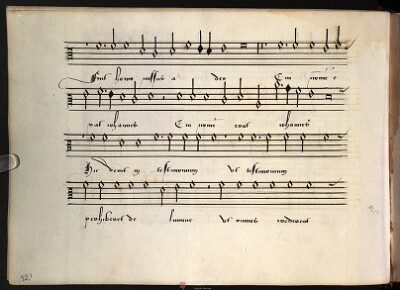 Fuit homo missus a deo Cui nomē e
rat iohannes Cui nomē erat iohannes
Hic venit in testimonium Ut testimonium
perhiberet de lumine Ut omnes crederent